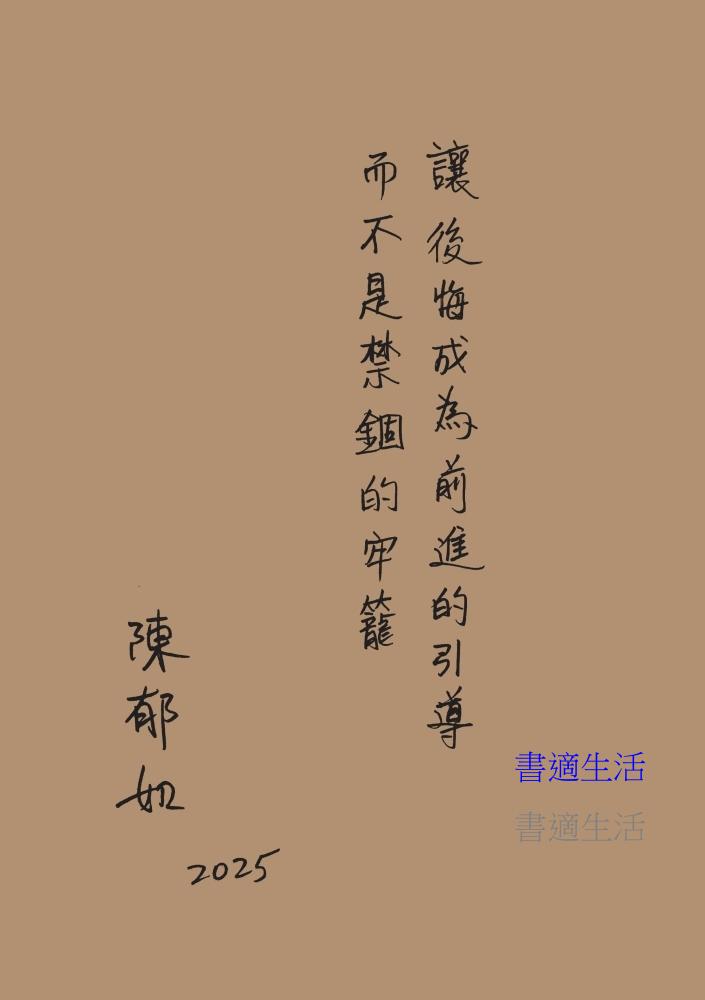 讓後悔成為前進的引導
而不是禁錮的牢籠
陳郁如
2025
書適生活
書適生活